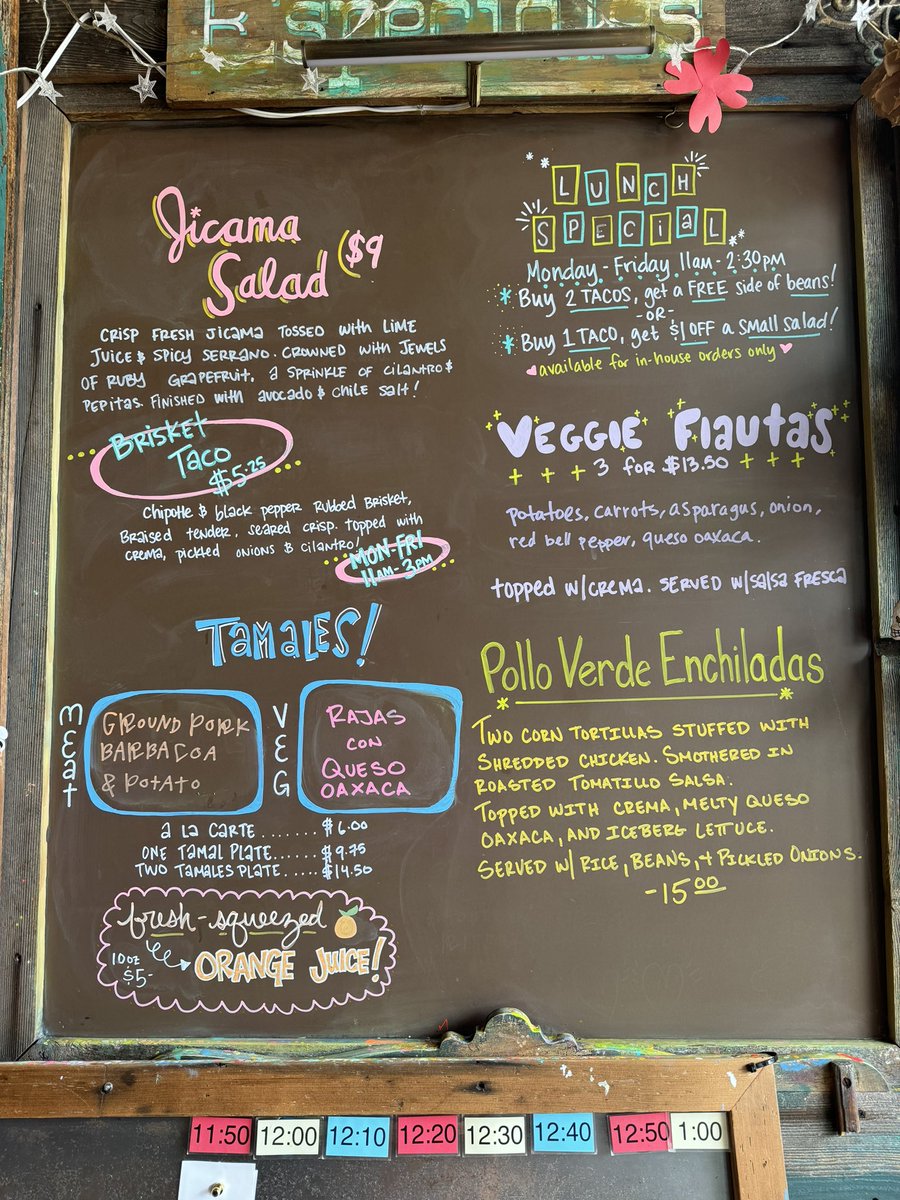 Especiales
Jicama
Salad $9
CRISP FRESH JICAMA TOSSED WITH LIME
JUICE & SPICY SERRANO. CROWNED WITH JEWELS
OF RUBY GRAPEFRUIT, A SPRINKLE OF CILANTRO &
PEPITAS. FINISHED WITH AVOCADO & CHILE SALT!
BRISKET
TACO
$5.25
Chipotle & black pepper Rubbed Brisket,
Braised tender, seared crisp. topped with
crema, pickled onions & cilantro!
MON-FRI
11AM-3PM
TAMALES!
meat
GROUND PORK
BARBACOA
& POTATO
VEG
RAJAS
CON
QUESO
OAXACA
a la carte ....... $6.00
ONE TAMAL PLATE ...... $9.75
TWO TAMALES PLATE ..... $14.50
fresh-squeezed
10oz
$5-
ORANGE JUICE!
LUNCH
SPECiaL
Monday - Friday 11am - 2:30pm
* Buy 2 TACOS, get a FREE side of beans!
-OR-
* Buy 1 TACO, get $1 OFF a small salad!
available for in-house orders only
VEGGIE Flautas
3 for $13.50
potatoes, carrots, asparagus, onion,
red bell pepper, queso oaxaca.
topped w/crema. SERVED w/salsa FRESCA
Pollo Verde Enchiladas
TWO CORN TORTILLAS STUFFED WITH
SHREDDED CHICKEN. SMOTHERED IN
ROASTED TOMATILLO SALSA.
TOPPED WITH CREMA, MELTY QUESO
OAXACA, AND ICEBERG LETTUCE.
SERVED W/ RICE, BEANS, + PICKLED ONIONS.
-15.00
11:50 12:00 12:10 12:20 12:30 12:40 12:50 1:00